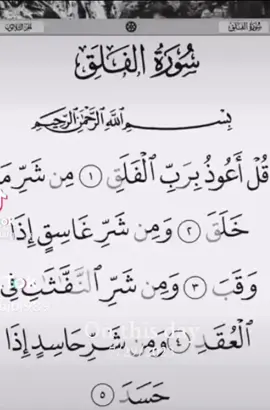 سُورَةُ الفَلَقِ
بِسْمِ اللَّهِ الرَّحْمَٰنِ الرَّحِيمِ
قُلْ أَعُوذُ بِرَبِّ الْفَلَقِ ١ مِن شَرِّ مَا
خَلَقَ ٢ وَمِن شَرِّ غَاسِقٍ إِذَا
وَقَبَ ٣ وَمِن شَرِّ النَّفَّٰثَٰتِ فِى
الْعُقَدِ ٤ وَمِن شَرِّ حَاسِدٍ إِذَا
حَسَدَ ٥
On this day